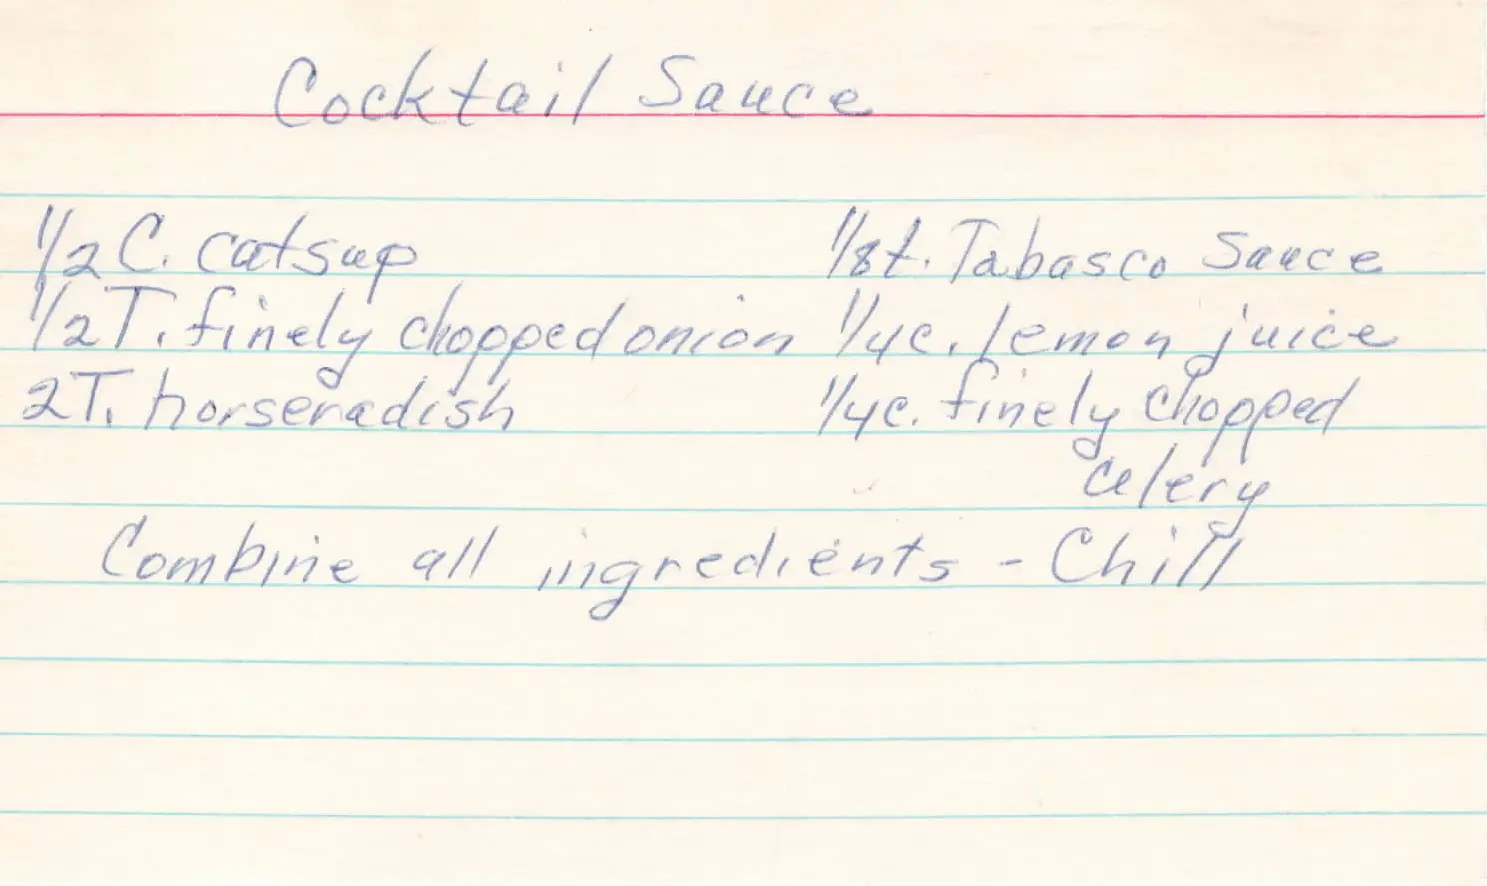 Cocktail Sauce
1/2 C. catsup
1/2 T. finely chopped onion
2T. horseradish
1/8 t. Tabasco Sauce
1/4 c. lemon juice
1/4 c. finely chopped
celery
Combine all ingredients - Chill